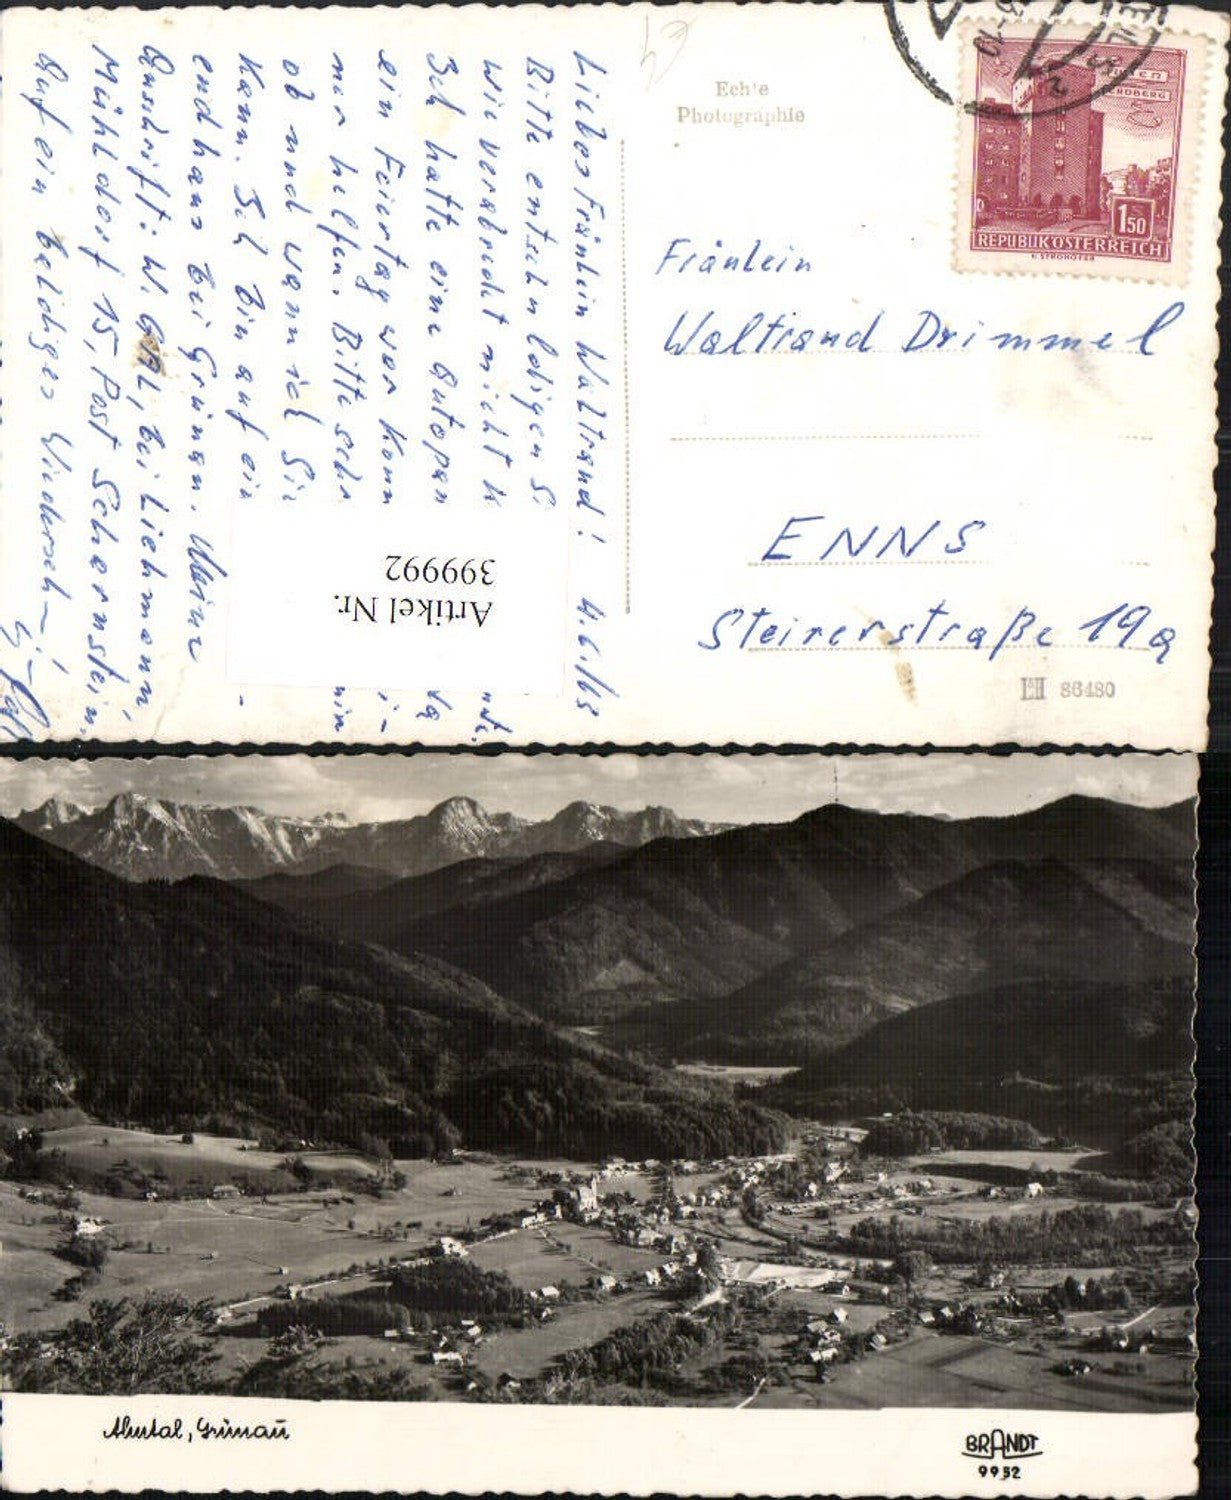 Liebes Fräulein Waltraud! 4.6./63
Bitte entschuldigen Si
wie verabredet nicht k nte.
Ich hatte eine Autopan
ein Feiertag war konn i-
mer helfen. Bitte schr
ob und wann ich Sie
kann. Ich bin auf ein -
endhaus bei Grünau. Meine
Anschrift: W. Gal, bei Liehmann
Mühldorf 15, Post Scharnstein.
Auf ein baldiges Wiederseh-
Echte
Photographie
REPUBLIK ÖSTERREICH
1.50
Fräulein
Waltraud Drimmel
ENNS
Steirerstraße 19a
86480
Artikel Nr.
399992
Almtal, Grünau
BRANDT
9952